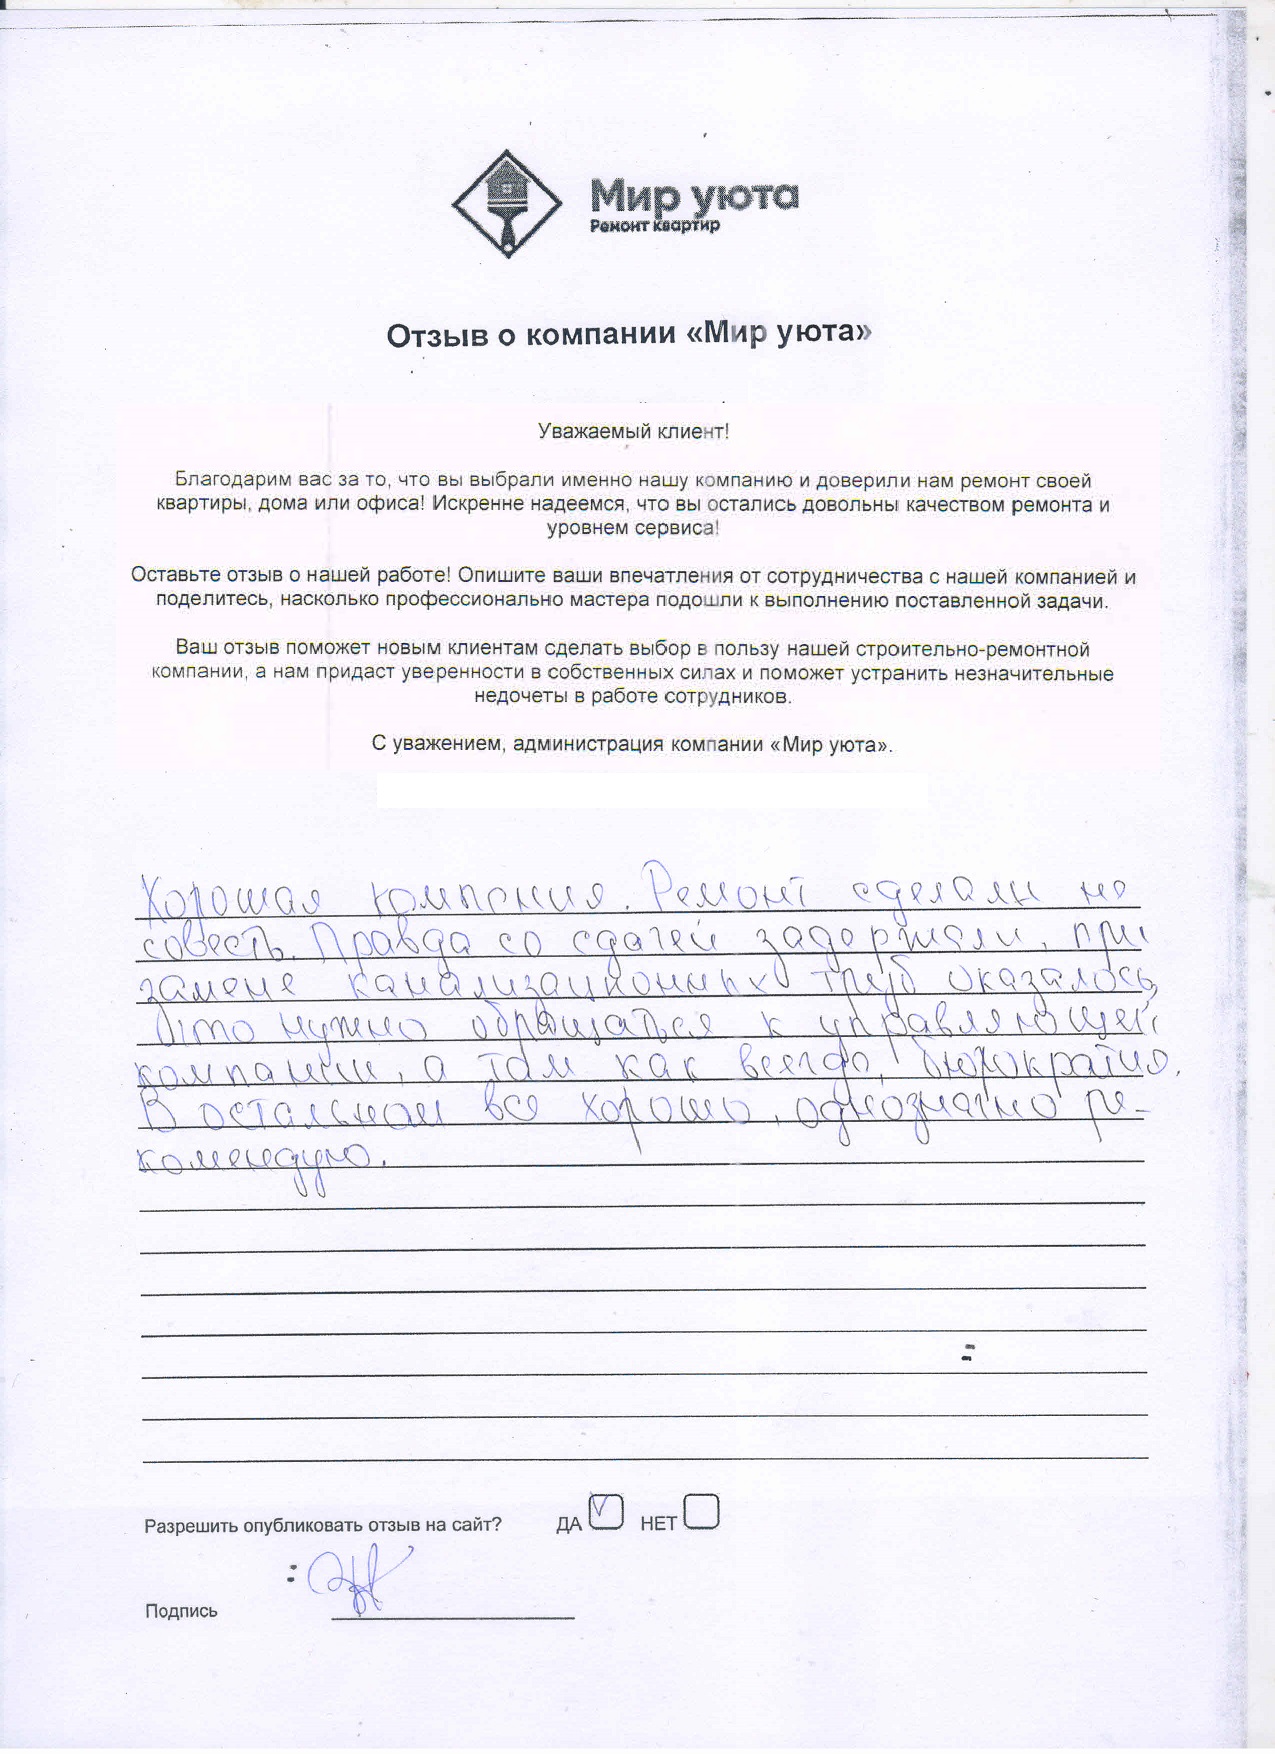 Мир уюта
Ремонт квартир
Отзыв о компании «Мир уюта»
Уважаемый клиент!
Благодарим вас за то, что вы выбрали именно нашу компанию и доверили нам ремонт своей
квартиры, дома или офиса! Искренне надеемся, что вы остались довольны качеством ремонта и
уровнем сервиса!
Оставьте отзыв о нашей работе! Опишите ваши впечатления от сотрудничества с нашей компанией и
поделитесь, насколько профессионально мастера подошли к выполнению поставленной задачи.
Ваш отзыв поможет новым клиентам сделать выбор в пользу нашей строительно-ремонтной
компании, а нам придаст уверенности в собственных силах и поможет устранить незначительные
недочеты в работе сотрудников.
С уважением, администрация компании «Мир уюта».
Хорошая компания. Ремонт сделали на
совесть. Правда со сдачей задержали, при
замене канализационных труб оказалось
что нужно обращаться к управляющей
компании, а там как всегда, бюрократия.
В остальном все хорошо, однозначно ре-
комендую.
Разрешить опубликовать отзыв на сайт? ДА V НЕТ
Подпись